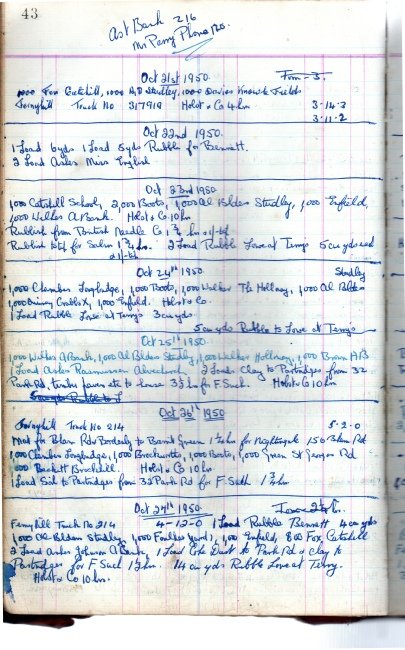 43
Ast Bank 216
Mr Perry Phone No.
Oct 21st 1950.
1000 Fox Catshill, 1000 A,B Studley, 1000 Davies Fields
Truck No 317919 Holst & Co 4 hrs 3-14-3
3-11-2
Oct 22nd 1950.
1 Load 6yds 1 Load 5yds Rubble for Bennett.
2 Load Ashes Miss English
Oct 23rd 1950
1,000 Catshill School, 2,000 Boots, 1,000 Al Blden Studley, 1,000 Enfield,
1,000 Wilkes A. Bank. Holst & Co 10 hrs
Rubbish from British Needle Co 1 3/4 hrs
Rubbish 1 3/4 hr. 2 Load Rubble Love at Terrys 5 cu yds each
Oct 24th 1950. Studley
1,000 Chamber Longbridge, 1,000 Boots, 1,000 Walker The Hollway, 1,000 Al Blden
1,000 X, 1,000 Enfield. Holst & Co.
1 Load Rubble Love at Terrys 3 cu yds.
5 cu yds Rubble to Love at Terrys
Oct 25th 1950.
1,000 Wilkes A Bank, 1,000 Al Blden Studley, 1,000 Walker Hollway, 1,000 H/B
1 Load Ashes Rasmussen Alvechurch 2 Loads Clay to Partridges from 32
Park Rd, timber etc to house 3 1/2 hr F. Such. Holst & Co 10 hrs
Oct 26th 1950
Truck No 214 5-2-0
Mat for Blan Rdw to Band Green 1 1/2 hr for Nightingale 150 Rd
1,000 Chamber Longbridge, 1,000 1,000 Boots, 1,000 Green St Georges Rd
1000 Beckett Holst & Co 10 hrs
1 Load Soil to Partridges from 32 Park Rd for F. Such 1 3/4 hr
Oct 27th 1950.
Truck No 214 4-12-0 1 Load Rubble Bennett 4 cu yds
1,000 Al Blden Studley, 1,000 Yard, 1,00 Enfield, 800 Fox, Catshill
2 Load Ashes Johnson A. Bank, 1 Load Coke Dust to Park Rd & Clay to
Partridges for F Such 1 1/2 hr. 14 cu yds Rubble Love at Terry.
Holst & Co 10 hrs.